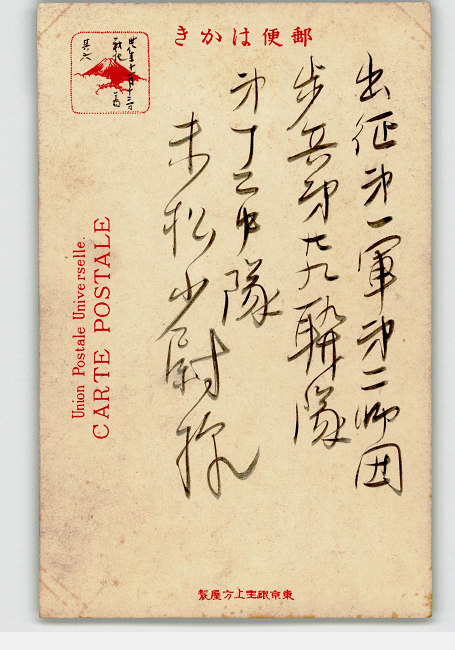 郵便はかき
出征第一軍第二師団
歩兵第廿九聯隊
第十二中隊
末松少尉様
Union Postale Universelle.
CARTE POSTALE
東京銀座上方屋製